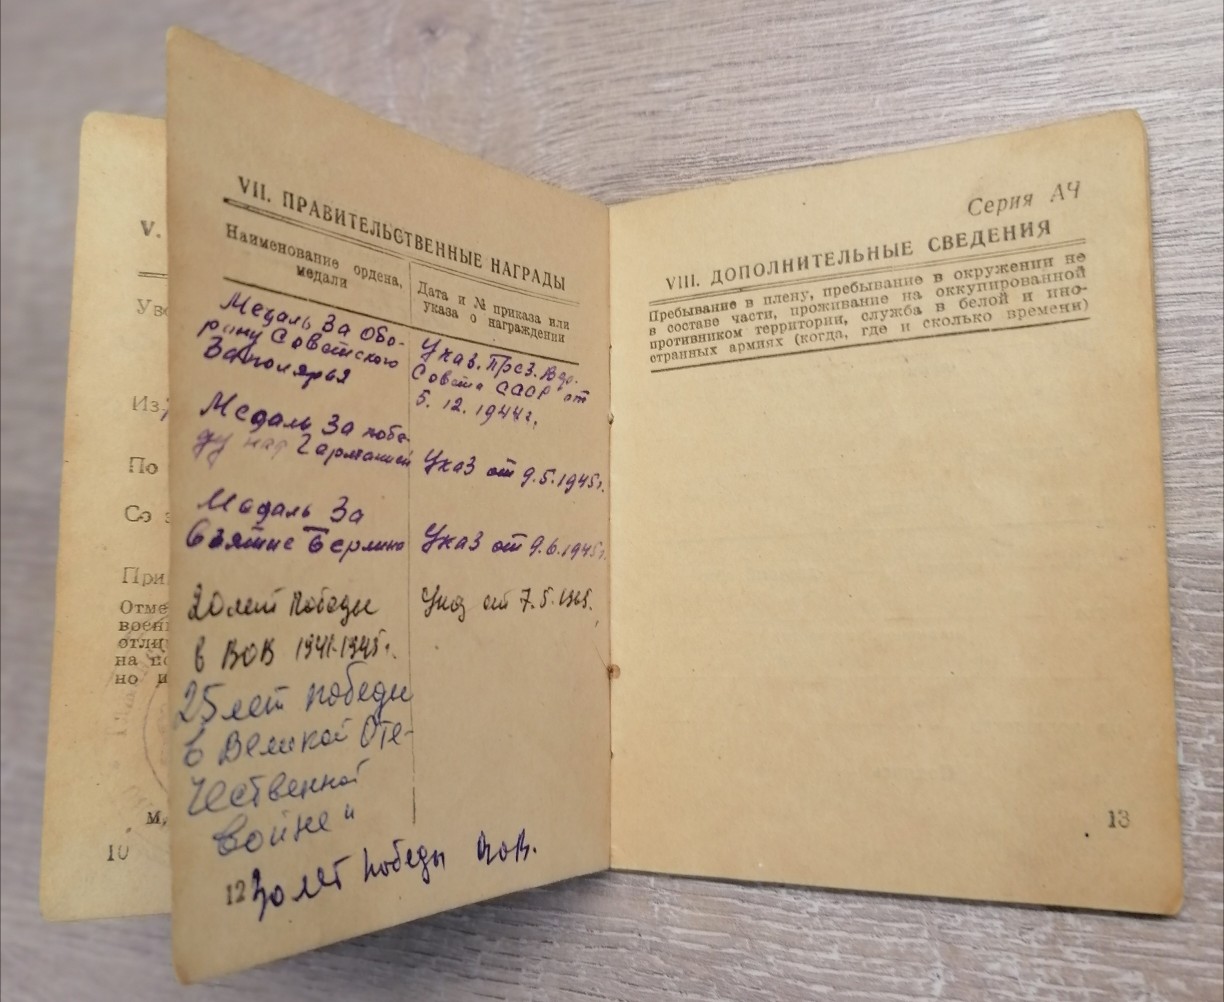 V.
Уво
Из
По
Со з
При
Отме
воен
отли
на по
но и
м.
10
VII. ПРАВИТЕЛЬСТВЕННЫЕ НАГРАДЫ
Наименование ордена, медали
Дата и № приказа или указа о награждении
Медаль За Обо-
рону Советского
Заполярья
Указ. През. Вер.
Совета СССР от
5. 12. 1944 г.
Медаль За побе-
ду над Германией
Указ от 9.5.1945г.
Медаль За
Взятие Берлина
Указ от 9.6.1945г.
20 лет Победы
в ВОВ 1941-1945г.
Указ от 7.5.1965.
25 лет победы
в Великой Оте-
чественной
войне"
12
30 лет победы
ВОВ.
Серия АЧ
VIII. ДОПОЛНИТЕЛЬНЫЕ СВЕДЕНИЯ
Пребывание в плену, пребывание в окружении не
в составе части, проживание на оккупированной
противником территории, служба в белой и ино-
странных армиях (когда, где и сколько времени)
13